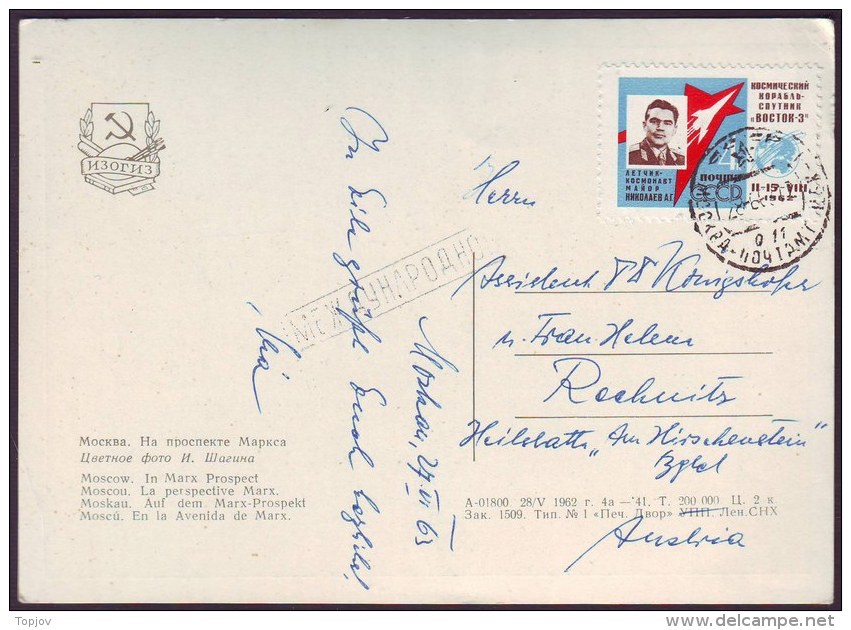 ИЗОГИЗ
КОСМИЧЕСКИЙ
КОРАБЛЬ-
СПУТНИК
"ВОСТОК-3"
ЛЕТЧИК-
КОСМОНАВТ
МАЙОР
НИКОЛАЕВ А.Г.
4К
ПОЧТА
СССР
11-15.VIII
1962
МОСКВА-ПОЧТАМТ
МЕЖДУНАРОДНО
In Eile grüßt Euch herzlich
Moskau, 27. VI 63
Herrn
Assistent
Königshofer
u. Frau Helene
Rechnitz
Heilstätte "Am Hirschenstein"
Bgld
Austria
Москва. На проспекте Маркса
Цветное фото И. Шагина
Moscow. In Marx Prospect
Moscou. La perspective Marx.
Moskau. Auf dem Marx-Prospekt
Moscú. En la Avenida de Marx.
А-01800. 28/V 1962 г. 4а — 41. Т. 200 000. Ц. 2 к.
Зак. 1509. Тип. № 1 «Печ. Двор» УПП Лен.СНХ
Topjov
delcampe.net